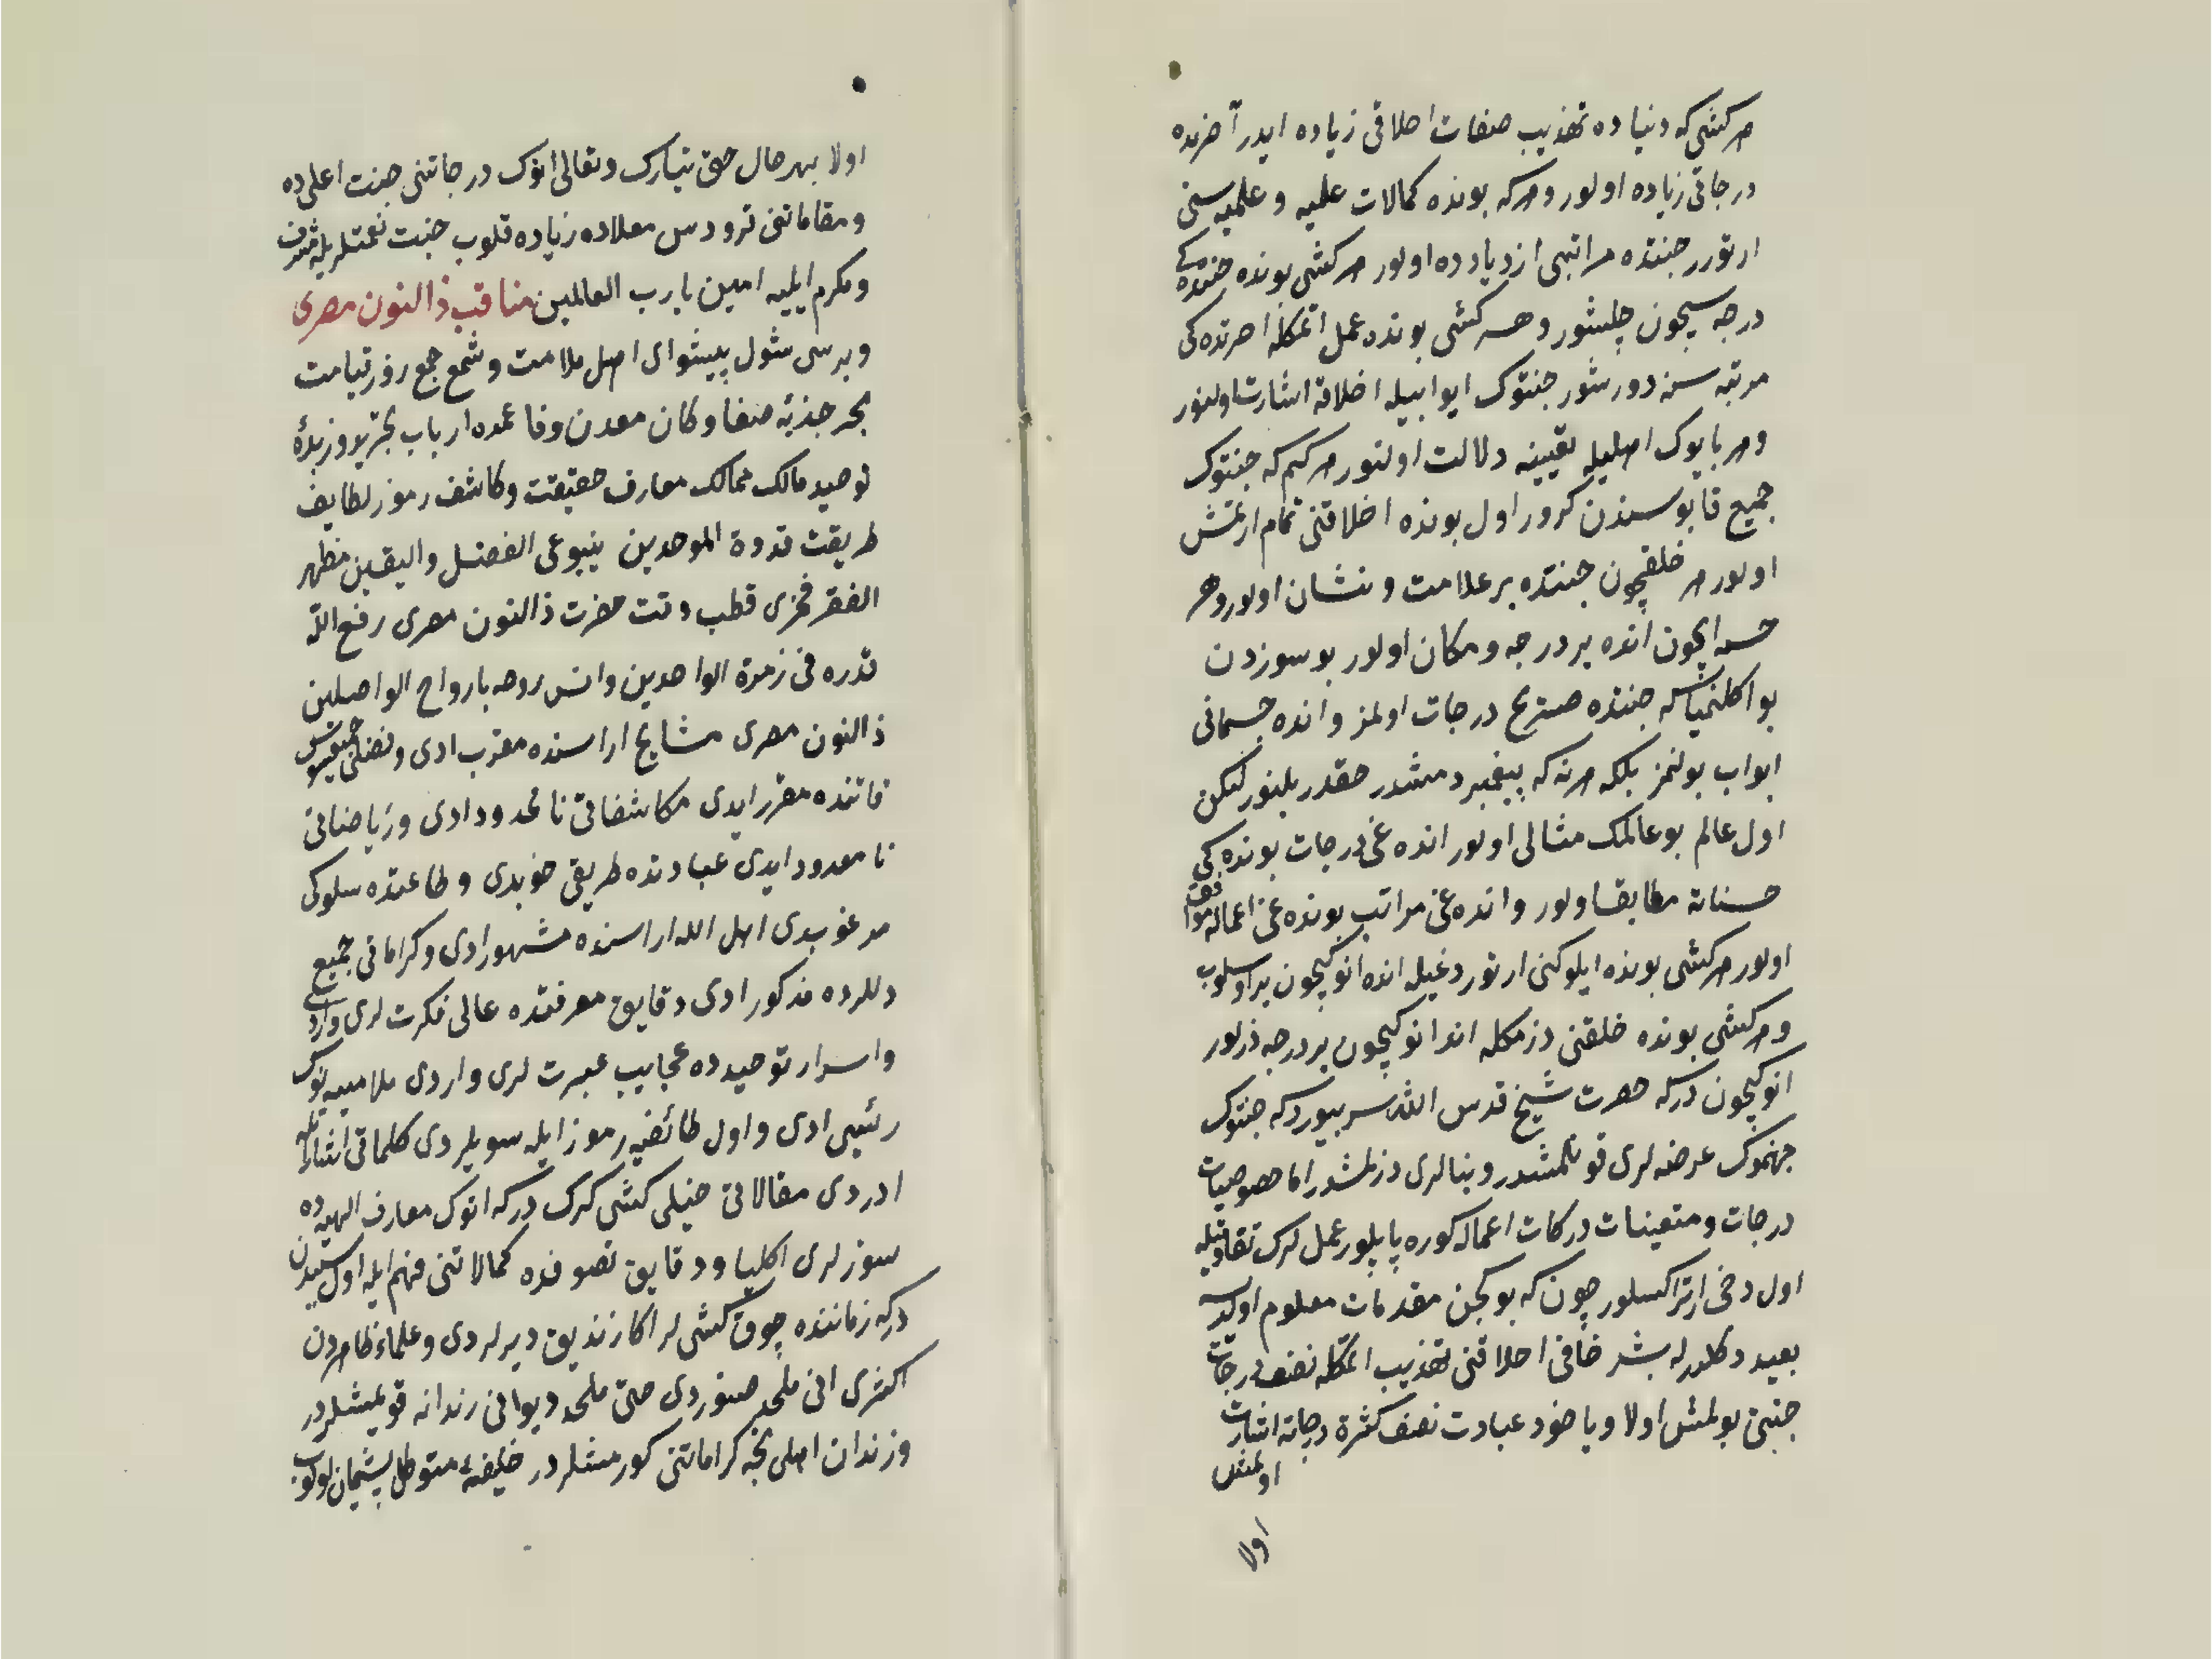 هر كشى كه دنياده تهذيب صفات اخلاقى زياده ايدر آخرتده
درجاتى زياده اولور و هر كه بونده كمالات علميه و عمليه سنى
ارتورر جنتده مراتبى ازدياد ده اولور هر كشى بونده جنتده كى
درجه سيچون چلشور و هر كشى بونده عمل اتمكله اخرتده كى
مرتبه سنه دورشور جنتوك ابوابيله اخلاقه اشارت اولنور
و هر بابوك اهليله يقينه دلالت اولنور هر كم كه جنتوك
جميع قاپوسندن كرور اول بونده اخلاقنى تمام ارتمش
اولور هر خلقيچون جنتده بر علامت و نشان اولور و هر
حسنه ايچون انده بر درجه و مكان اولور بو سوزدن
بو اكلنمياسه كه جنتده صريح درجات اولمز و انده جسمانى
ابواب بولنمز بلكه هر نه كه پيغمبر دمشدر حقدر بلنور ليكن
اول عالم بو عالمك مثالى اولور انده غى درجات بونده كى
حسناته مطابق اولور و انده غى مراتب بونده غى اعماله موافق
اولور هر كشى بونده ايلوكنى ارتوردغيله انده انوكيچون بر اسلوب
و هر كشى بونده خلقنى دزمكله اندا انوكيچون بر درجه دزلور
انوكيچون دركه حضرت شيخ قدس الله سره بيورر كه جنتوك
جهنموك عرضه لرى قونلمشدر و بنالرى دزلمشدر اما خصوصيات
درجات و متعينات دركات اعماله كوره ياپيلور عمل كرك تفاوتيله
اول دخى ارتر اكسلور چون كه بو كچن مقدمات معلوم اولدسه
بعيد دكلدر كه بشر حافى اخلاقنى تهذيب اتمكله نصف درجات
جنتى بولمش اولا و يا خود عبادت نصف كثرة درجاته اشارت
اولمش
اولا
اولا بهر حال حق تبارك و تعالى انوك درجاتنى جنت اعلى ده
و مقاماتنى فردوس معلاده زياده قلوب جنت نعمتلريله مشرف
و مكرم ايليه امين يا رب العالمين مناقب ذالنون مصرى
و برسى شول پيشواى اهل ملامت و شمع جمع روز قيامت
بحر جذبهٔ صفا و كان معدن وفا عمده ارباب تجريد و زبدهٔ
توحيد مالك ممالك معارف حقيقت و كاشف رموز لطايف
طريقت قدوة الموحدين ينبوعى الفضل و اليقين مظهر
الفقر فخرى قطب وقت حضرت ذالنون مصرى رفع الله
قدره فى زمرة الواحدين و انس روحه بارواح الواصلين
ذالنون مصرى مشايخ اراسنده مقرب ادى و فضلى جميع ناس
قاتنده مقرر ايدى مكاشفاتى نامحدود ادى و رياضاتى
نا معدود ايدى عبادتده طريقى خوبدى و طاعتده سلوكى
مرغوبدى اهل الله اراسنده مشهور ادى و كراماتى جميع
دللرده مذكور ادى دقايق معرفتده عالى فكرت لرى واردى
و اسرار توحيد ده عجايب عبرت لرى واردى ملاميه نوك
رئيسى ادى و اول طائفيه رموز ايله سويلردى كلماتى اشارتله
ادردى مقالاتى خيلى كشى كرك دركه انوك معارف الهيه ده
سوزلرى اكليا و دقايق تصوفده كمالاتنى فهم ايله اول سببدن
دركه زماننده چوق كشى لر اكا زنديق ديرلردى و علماء ظاهردن
اكثرى انى ملحد صنوردى حتى ملحد ديو انى زندانه قويمشلردر
و زندان اهلى نجه كراماتنى كورمشلردر خليفهٔ متوكل پشيمان اولوب